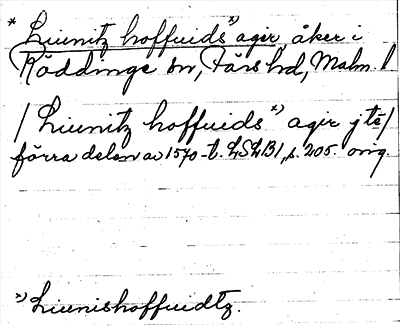 * Liunitz hoffuids *) agir, åker i
Röddinge sn, Färs hd, Malm. l
/ Liunitz hoffuids *) agir jtē /
förra delen av 1570-t. LSLB1, s. 205. orig.
*) Liunishoffuidtz.